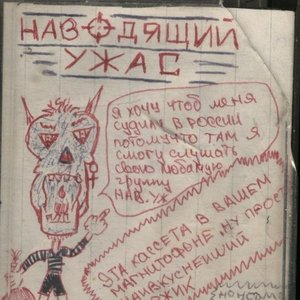 НАВОДЯЩИЙ
УЖАС
Я ХОЧУ ЧТОБ МЕНЯ
СУДИЛИ В РОССИИ
ПОТОМУЧТО ТАМ Я
СМОГУ СЛУШАТЬ
СВОЮ ЛЮБИМУЮ
ГРУППУ
НАВ. УЖ.
ЭТА КАССЕТА В ВАШЕМ
МАГНИТОФОНЕ, НУ ПРОС
НАИВКУСНЕЙШИЙ